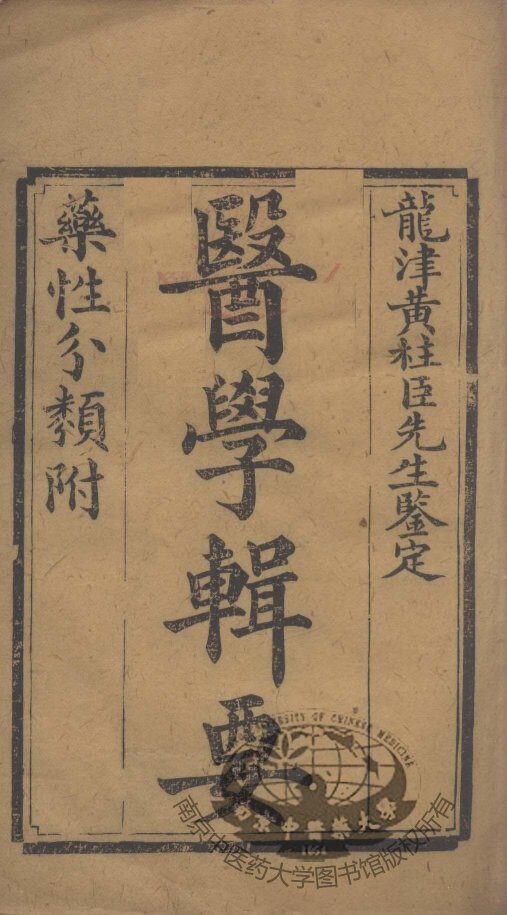 龍津黃柱臣先生鑒定
醫學輯要
藥性分類附
UNIVERSITY OF CHINESE MEDICINE
南京中医药大学
1954
南京中医药大学图书馆版权所有